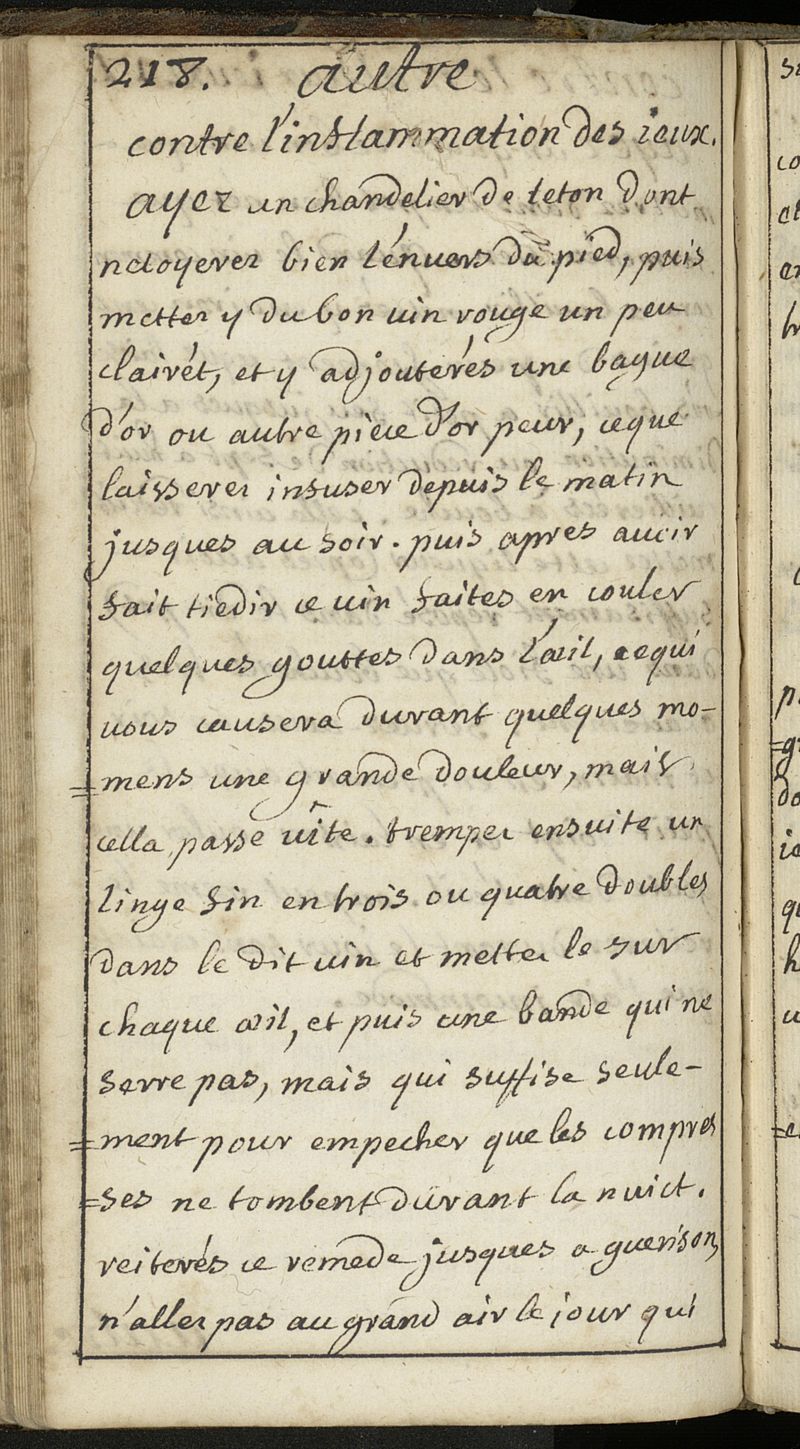 218. autre
contre l'inflammation des ieux.
ayez un chandelier de leton dont
nétoyerez bien l'énuers du pied, puis
mettez y du bon uin rouge un peu
clairét, et y adjouterés une bague
d'or ou autre piece d'or peur, ceque
laisserez infuser depuis le matin
jusques au soir. puis apres auoir
fait tiedir ce uin faites en couler
quelques gouttes dans l'œil, cequi
uous causera durant quelques mo-
=mens une grande douleur, mais
cella passe uîte. trempez ensuite un
linge fin en trois ou quatre doubles
dans le dit uin et mettez le sur
chaque œil, et puis une bande qui ne
serre pas, mais qui suffise seule-
=ment pour empecher que les compres
=ses ne tombent durant la nuict.
reiterés ce remede jusques a guerison,
n'allez pas au grand air le jour qui